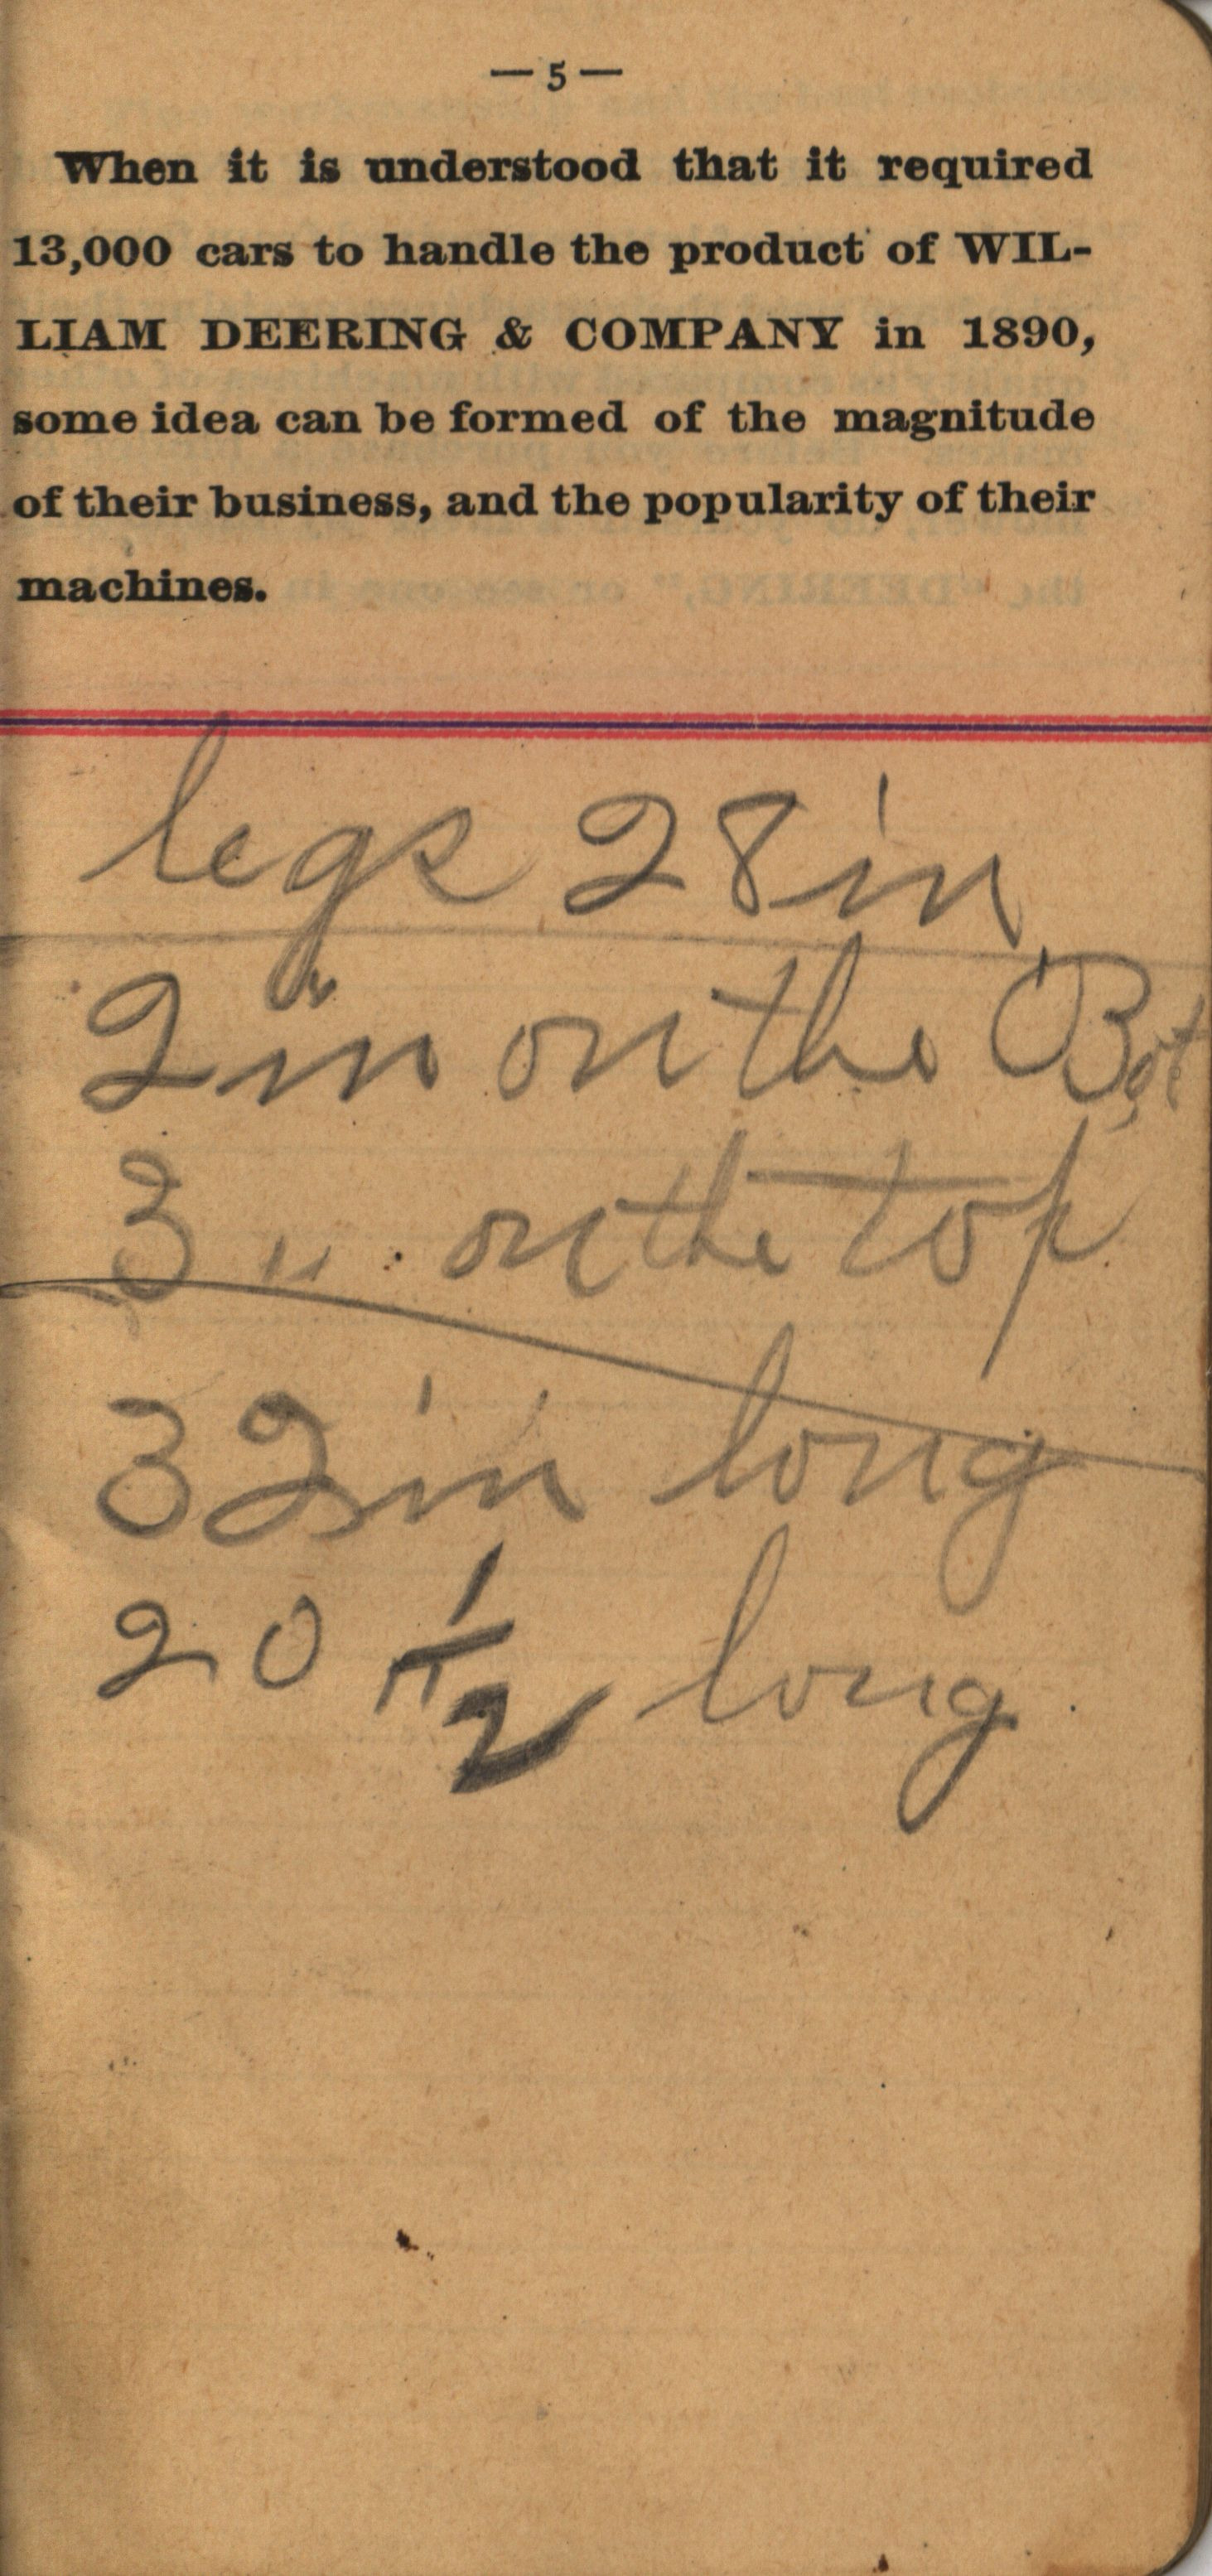 — 5 —
When it is understood that it required
13,000 cars to handle the product of WIL-
LIAM DEERING & COMPANY in 1890,
some idea can be formed of the magnitude
of their business, and the popularity of their
machines.
legs 28 in
2 in on the Bot
3 " on the top
32 in long
20 1/2 long